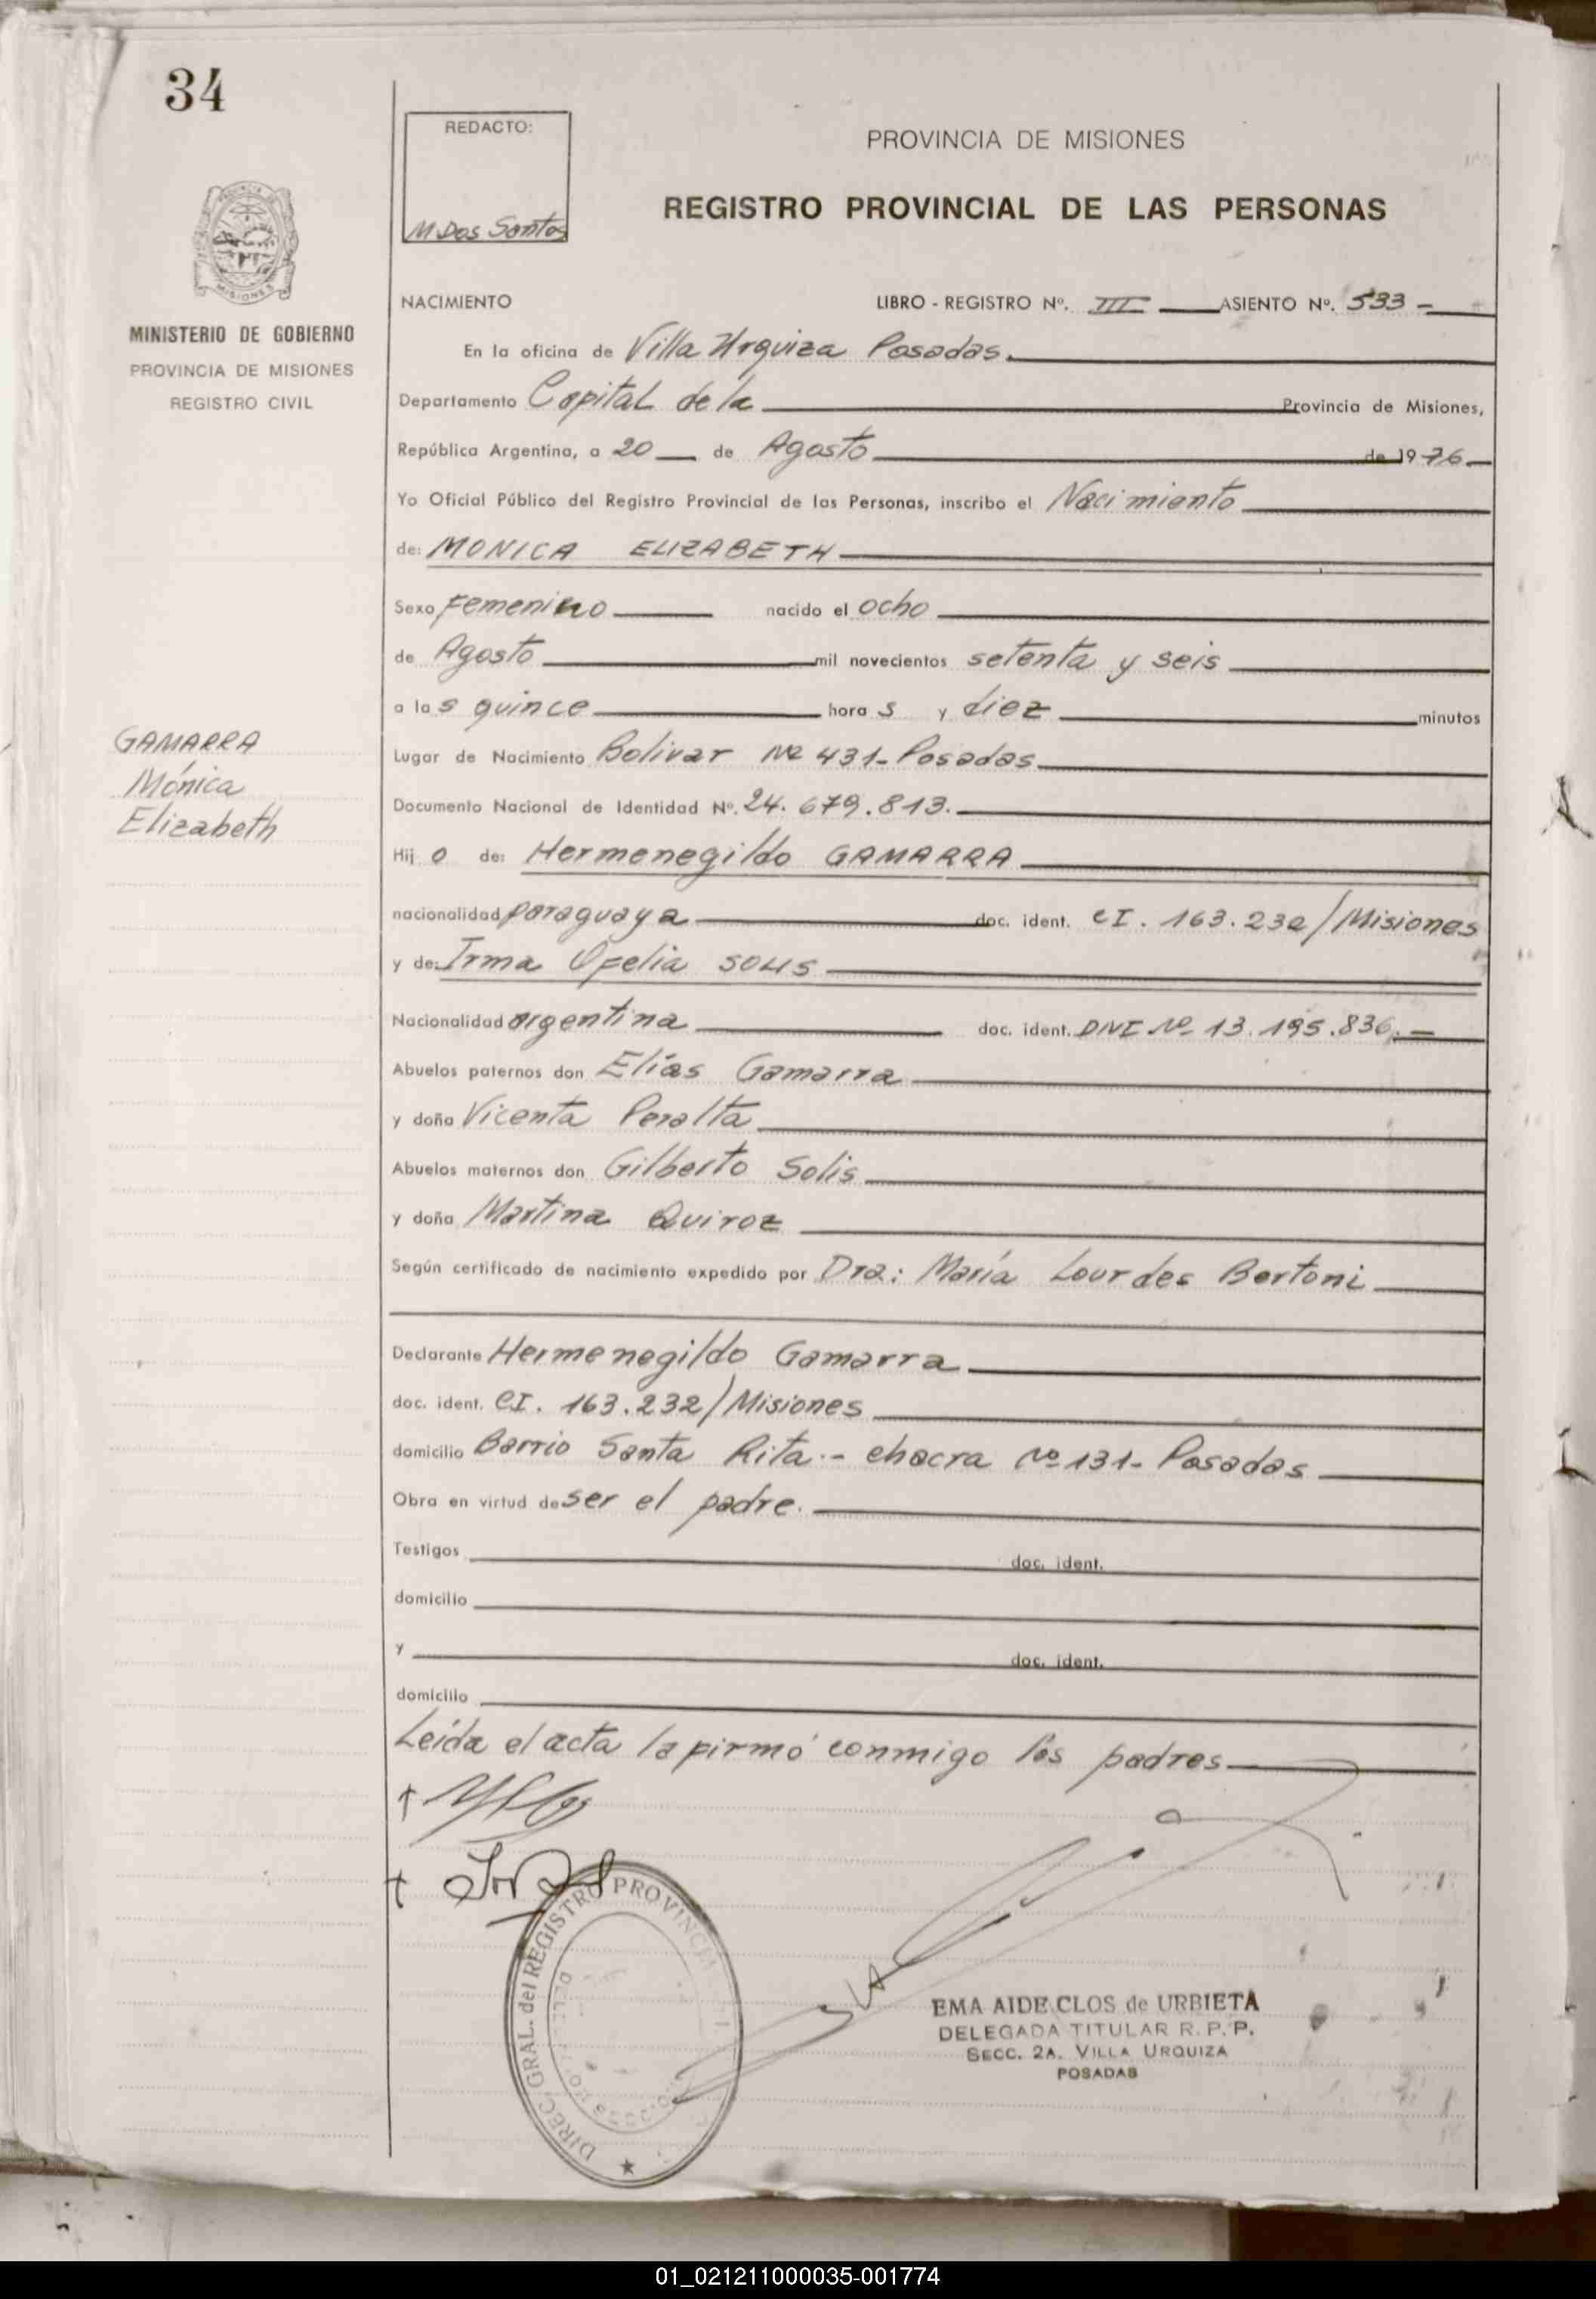 34
REDACTO:
M Dos Santos
PROVINCIA DE MISIONES
REGISTRO PROVINCIAL DE LAS PERSONAS
MINISTERIO DE GOBIERNO
PROVINCIA DE MISIONES
REGISTRO CIVIL
NACIMIENTO LIBRO - REGISTRO Nº. III ASIENTO Nº. 533 -
En la oficina de Villa Urquiza Posadas.
Departamento Capital de la Provincia de Misiones,
República Argentina, a 20 de Agosto de 1976
Yo Oficial Público del Registro Provincial de las Personas, inscribo el Nacimiento
de: MONICA ELIZABETH
Sexo Femenino nacido el ocho
de Agosto mil novecientos setenta y seis
a las quince horas y diez minutos
GAMARRA
Mónica
Elizabeth
Lugar de Nacimiento Bolivar Nº 431- Posadas
Documento Nacional de Identidad Nº. 24.679.813.
Hij o de: Hermenegildo GAMARRA
nacionalidad paraguaya doc. ident. CI. 163.232/Misiones
y de: Irma Ofelia SOLIS
Nacionalidad argentina doc. ident. DNI Nº 13.195.836.-
Abuelos paternos don Elías Gamarra
y doña Vicenta Peralta
Abuelos maternos don Gilberto Solis
y doña Martina Quiroz
Según certificado de nacimiento expedido por Dra: María Lourdes Bertoni
Declarante Hermenegildo Gamarra
doc. ident. CI. 163.232/Misiones
domicilio Barrio Santa Rita.- chacra Nº 131- Posadas
Obra en virtud de ser el padre.
Testigos doc. ident.
domicilio
y doc. ident.
domicilio
Leída el acta la firmó conmigo los padres
DIREC. GRAL. del REGISTRO PROVINCIAL
EMA AIDE CLOS de URBIETA
DELEGADA TITULAR R. P. P.
SECC. 2A. VILLA URQUIZA
POSADAS
01_021211000035-001774